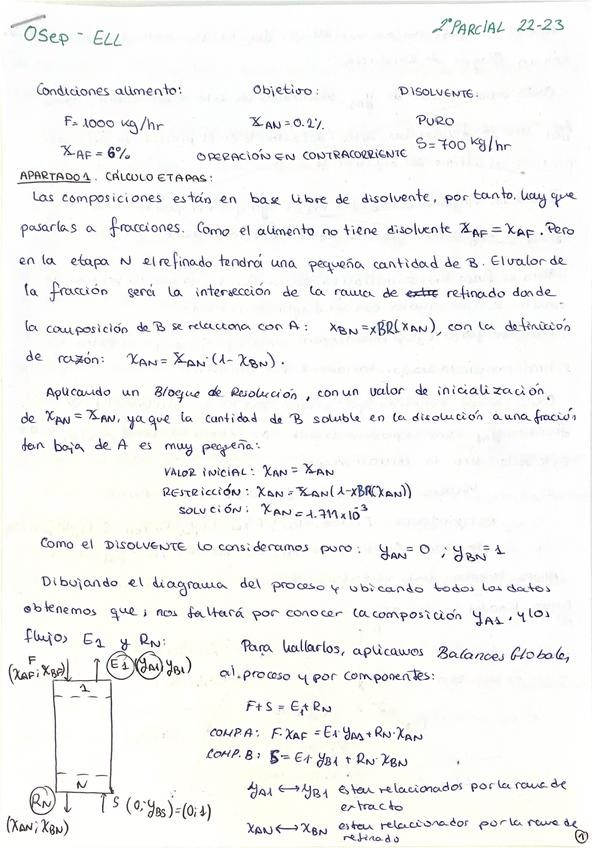 OSep - ELL
2º PARCIAL 22-23
Condiciones alimento:
Objetivo:
DISOLVENTE:
F= 1000 kg/hr
XAN = 0.2%
PURO
XAF = 6%
OPERACIÓN EN CONTRACORRIENTE
S= 700 kg/hr
APARTADO 1. CÁLCULO ETAPAS:
Las composiciones están en base libre de disolvente, por tanto, hay que
pasarlas a fracciones. Como el alimento no tiene disolvente XAF = xAF. Pero
en la etapa N el refinado tendrá una pequeña cantidad de B. El valor de
la fracción será la intersección de la rama de refinado donde
la composición de B se relacciona con A: xBN = xBR(xAN), con la definición
de razón: xAN = XAN·(1- xBN).
Aplicando un Bloque de Resolución, con un valor de inicialización,
de xAN = XAN, ya que la cantidad de B soluble en la disolución a una fración
tan baja de A es muy pegeña:
VALOR INICIAL: xAN = XAN
RESTRICCIÓN: xAN = XAN(1-xBR(xAN))
SOLUCIÓN: xAN = 1.711x10⁻³
Como el DISOLVENTE lo consideramos puro: yAN = 0 ; yBN = 1
Dibujando el diagrama del proceso y ubicando todos los datos
obtenemos que, nos faltará por conocer la composición yA1, y los
flujos E1 y RN:
Para hallarlos, aplicamos Balances Globales,
al proceso y por componentes:
F
(XAF; XBF)
E1 (yA1; yB1)
1
F+S = E1+RN
COMP A: F·XAF = E1·yA1 + RN·XAN
COMP. B: S = E1 yB1 + RN·XBN
N
RN
S (0; yBS) = (0; 1)
(XAN; XBN)
yA1 ⟷ yB1 estan relacionados por la rama de
extracto
XAN ⟷ XBN estan relacionador por la rama de
refinado
1